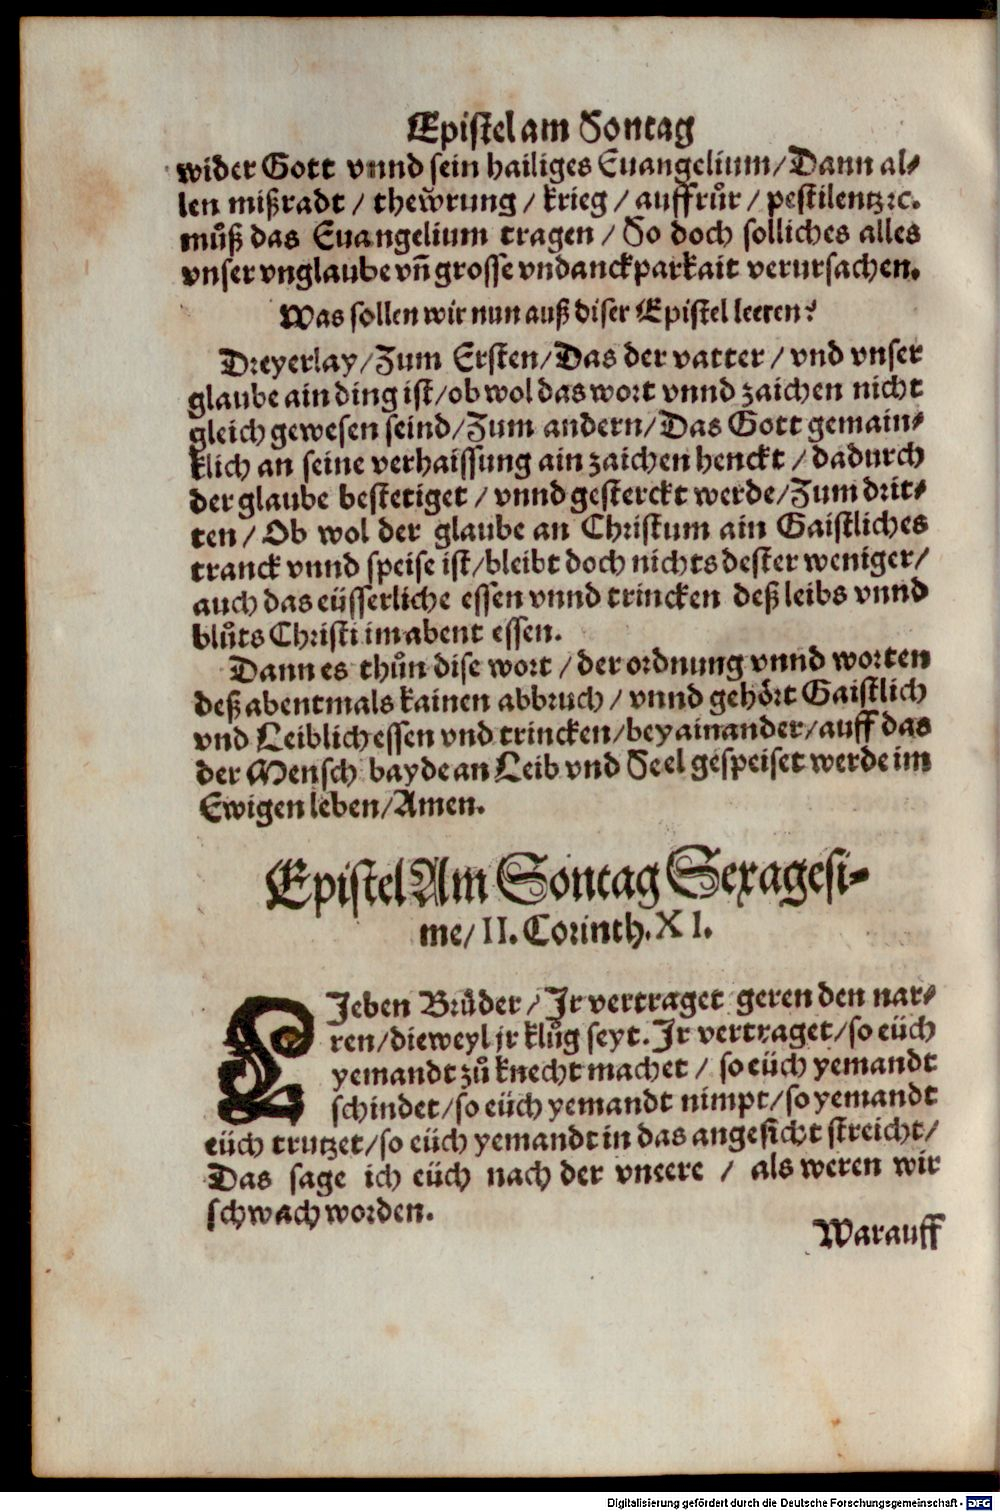 Epistel am Sontag
wider Gott vnnd sein hailiges Euangelium/Dann al⸗
len mißradt / thewrung / krieg / auffrůr / pestilentz ꝛc.
můß das Euangelium tragen / So doch solliches alles
vnser vnglaube vñ grosse vndanckparkait verursachen.
Was sollen wir nun auß diser Epistel leeren?
Dreyerlay/Zum Ersten/Das der vatter / vnd vnser
glaube ain ding ist/ob wol das wort vnnd zaichen nicht
gleich gewesen seind/Zum andern/Das Gott gemain⸗
klich an seine verhaissung ain zaichen henckt / dadurch
der glaube bestetiget / vnnd gesterckt werde/Zum drit⸗
ten / Ob wol der glaube an Christum ain Gaistliches
tranck vnnd speise ist/bleibt doch nichts dester weniger/
auch das eüsserliche essen vnnd trincken deß leibs vnnd
blůts Christi im abent essen.
Dann es thůn dise wort / der ordnung vnnd worten
deß abentmals kainen abbruch / vnnd gehört Gaistlich
vnd Leiblich essen vnd trincken/bey ainander/auff das
der Mensch bayde an Leib vnd Seel gespeiset werde im
Ewigen leben/Amen.
Epistel Am Sontag Sexagesi⸗
me/ II. Corinth. XI.
LIeben Brůder / Ir vertraget geren den nar⸗
ren/dieweyl jr klůg seyt. Ir vertraget/so eüch
yemandt zů knecht machet / so eüch yemandt
schindet/so eüch yemandt nimpt/so yemandt
eüch trutzet/so eüch yemandt in das angesicht streicht/
Das sage ich eüch nach der vneere / als weren wir
schwach worden.
Warauff
Digitalisierung gefördert durch die Deutsche Forschungsgemeinschaft - DFG